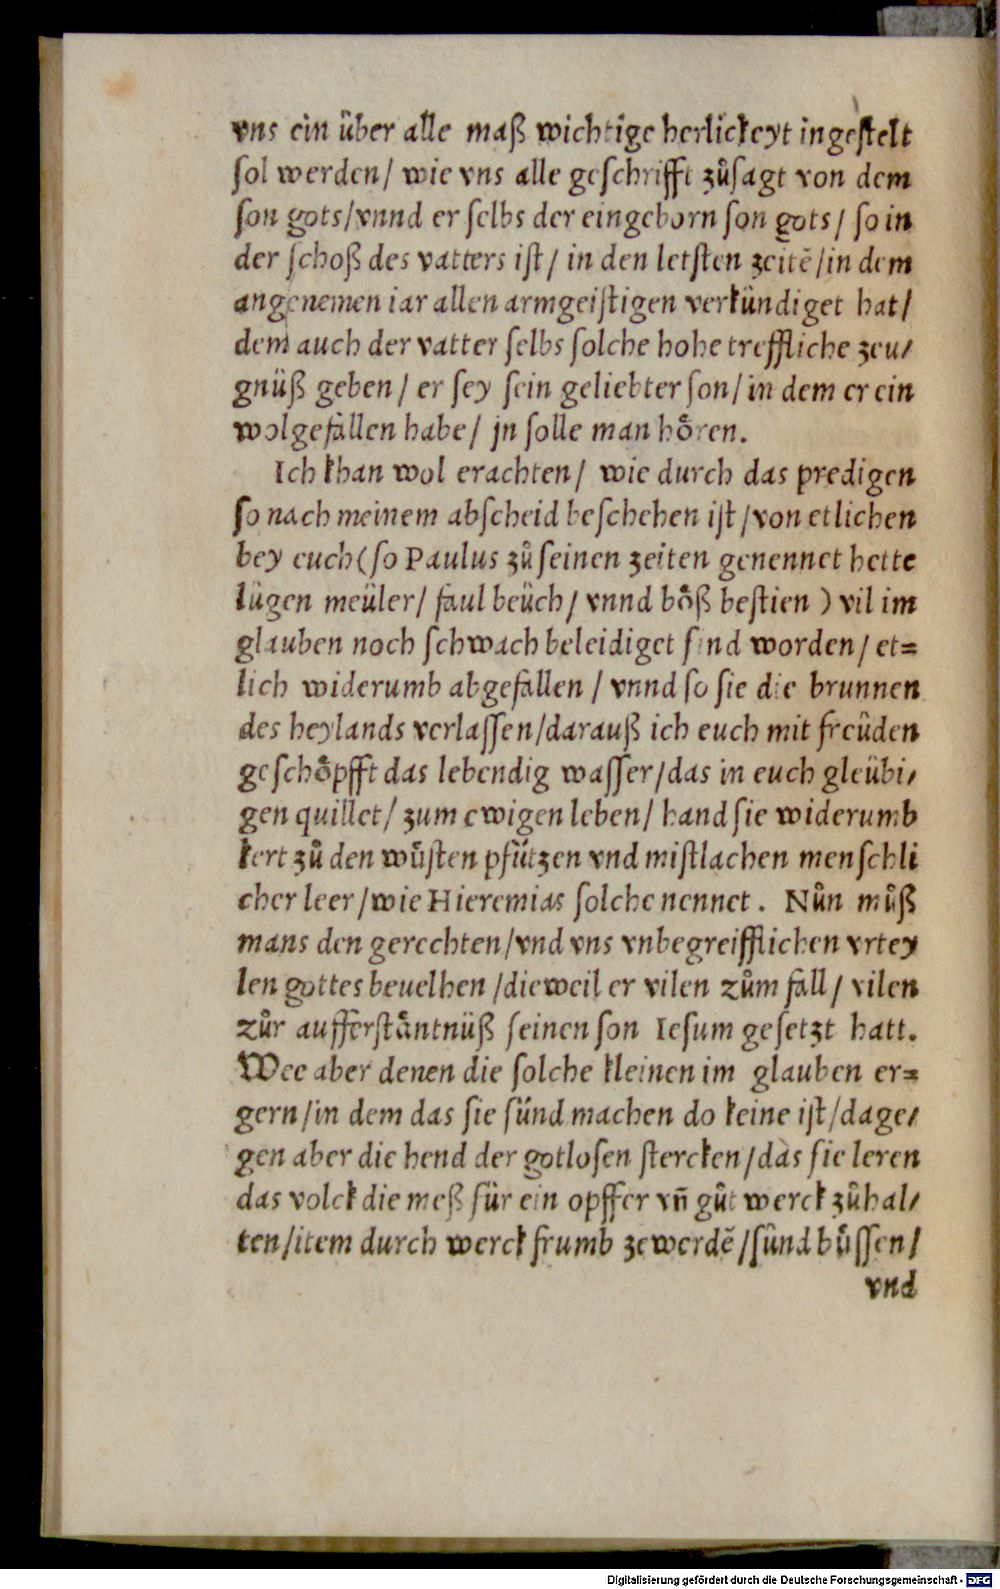 vns ein über alle maß wichtige herlickeyt ingestelt
sol werden/ wie vns alle geschrifft zůsagt von dem
son gots/vnnd er selbs der eingeborn son gots/ so in
der schoß des vatters ist/ in den letsten zeitẽ/in dem
angenemen iar allen armgeistigen verkündiget hat/
dem auch der vatter selbs solche hohe treffliche zeu/
gnüß geben/ er sey sein geliebter son/ in dem er ein
wolgefallen habe/ jn solle man hoͤren.
Ich khan wol erachten/ wie durch das predigen
so nach meinem abscheid beschehen ist/von etlichen
bey euch(so Paulus zů seinen zeiten genennet hette
lügen meüler/ faul beüch/ vnnd boͤß bestien) vil im
glauben noch schwach beleidiget sind worden/ et=
lich widerumb abgefallen/ vnnd so sie die brunnen
des heylands verlassen/darauß ich euch mit freüden
geschoͤpfft das lebendig wasser/das in euch gleübi/
gen quillet/ zum ewigen leben/ hand sie widerumb
kert zů den wuͤsten pfützen vnd mistlachen menschli
cher leer/wie Hieremias solche nennet. Nůn můß
mans den gerechten/vnd vns vnbegreifflichen vrtey
len gottes beuelhen/dieweil er vilen zům fall/ vilen
zůr aufferstaͤntnüß seinen son Iesum gesetzt hatt.
Wee aber denen die solche kleinen im glauben er=
gern/in dem das sie sünd machen do keine ist/dage/
gen aber die hend der gotlosen stercken/das sie leren
das volck die meß für ein opffer vñ gůt werck zůhal/
ten/item durch werck frumb zewerdẽ/sünd buͤssen/
vnd
Digitalisierung gefördert durch die Deutsche Forschungsgemeinschaft - DFG